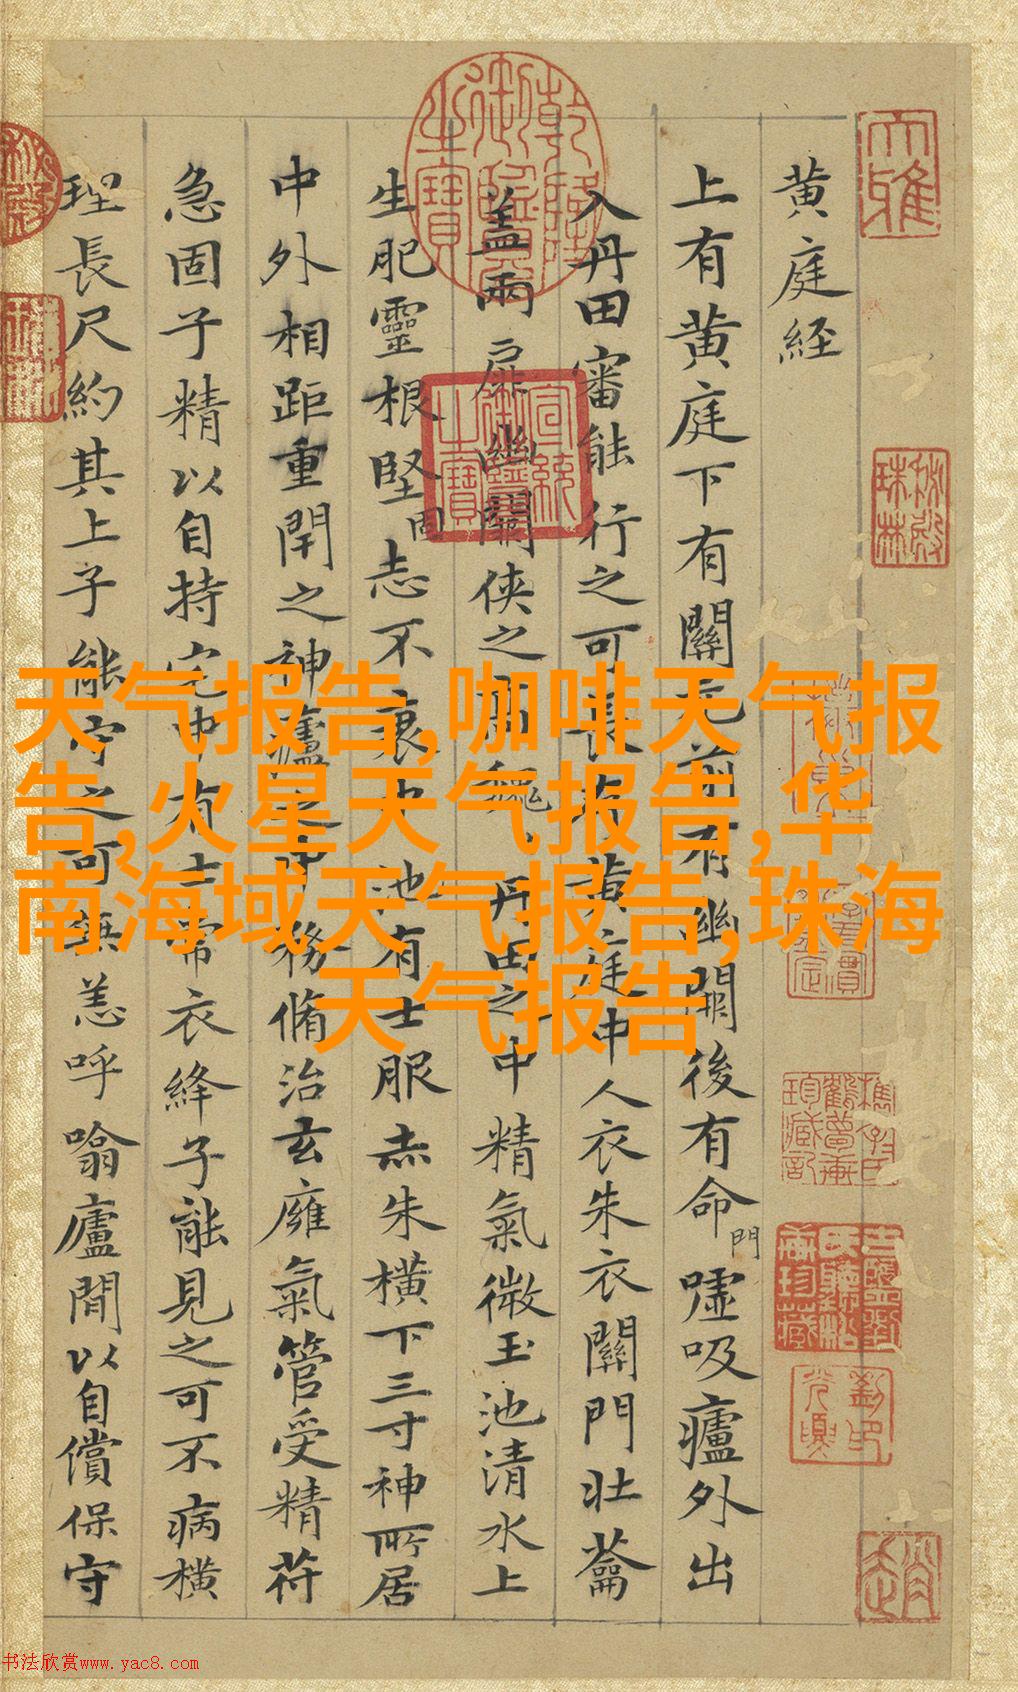 黄庭经
上有黄庭下有關元前有幽闕後有命門嘘吸廬外出
入丹田審能行之可長存黄庭中人衣朱衣關門壯蘥
蓋兩扉幽關俠之高巍丹田之中精氣微玉池清水上
生肥靈根堅固志不衰中池有士服赤朱橫下三寸神所居
中外相距重閇之神廬之中務脩治玄㢕氣管受精苻
急固子精以自持宅中有士常衣絳子能見之可不病橫
理長尺約其上子能守之可無恙呼噏廬間以自償保守
大雅
乾隆御覽之寶
宣統御覽之寶
秘殿珠林
天气报告,咖啡天气报
告,火星天气报告,华
南海域天气报告,珠海
天气报告
书法欣赏www.yac8.com